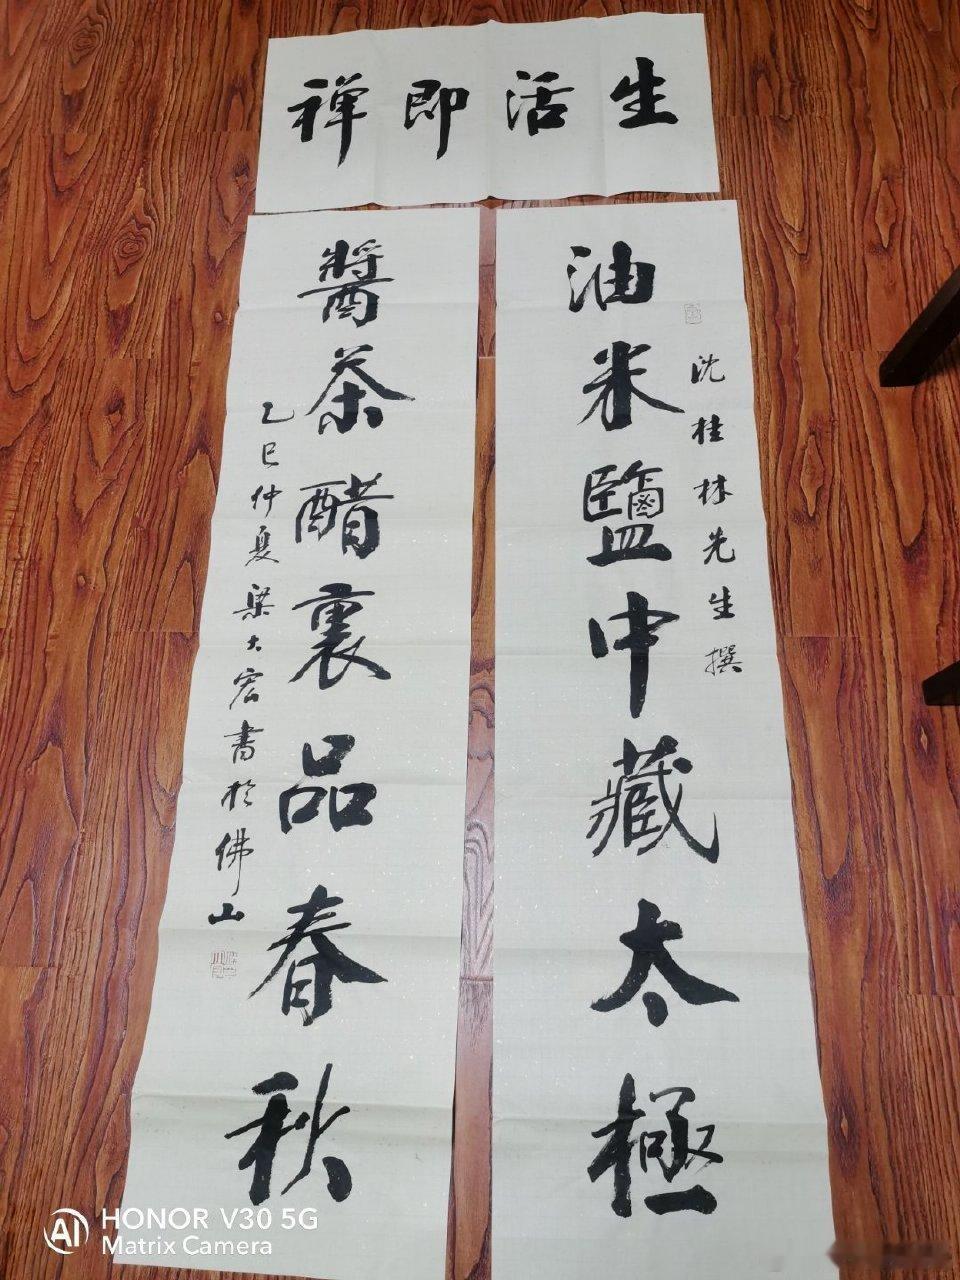 生活即禅
油米鹽中藏太極
沈桂林先生撰
醬茶醋裏品春秋
乙巳仲夏梁大宏書於佛山
HONOR V30 5G
Matrix Camera